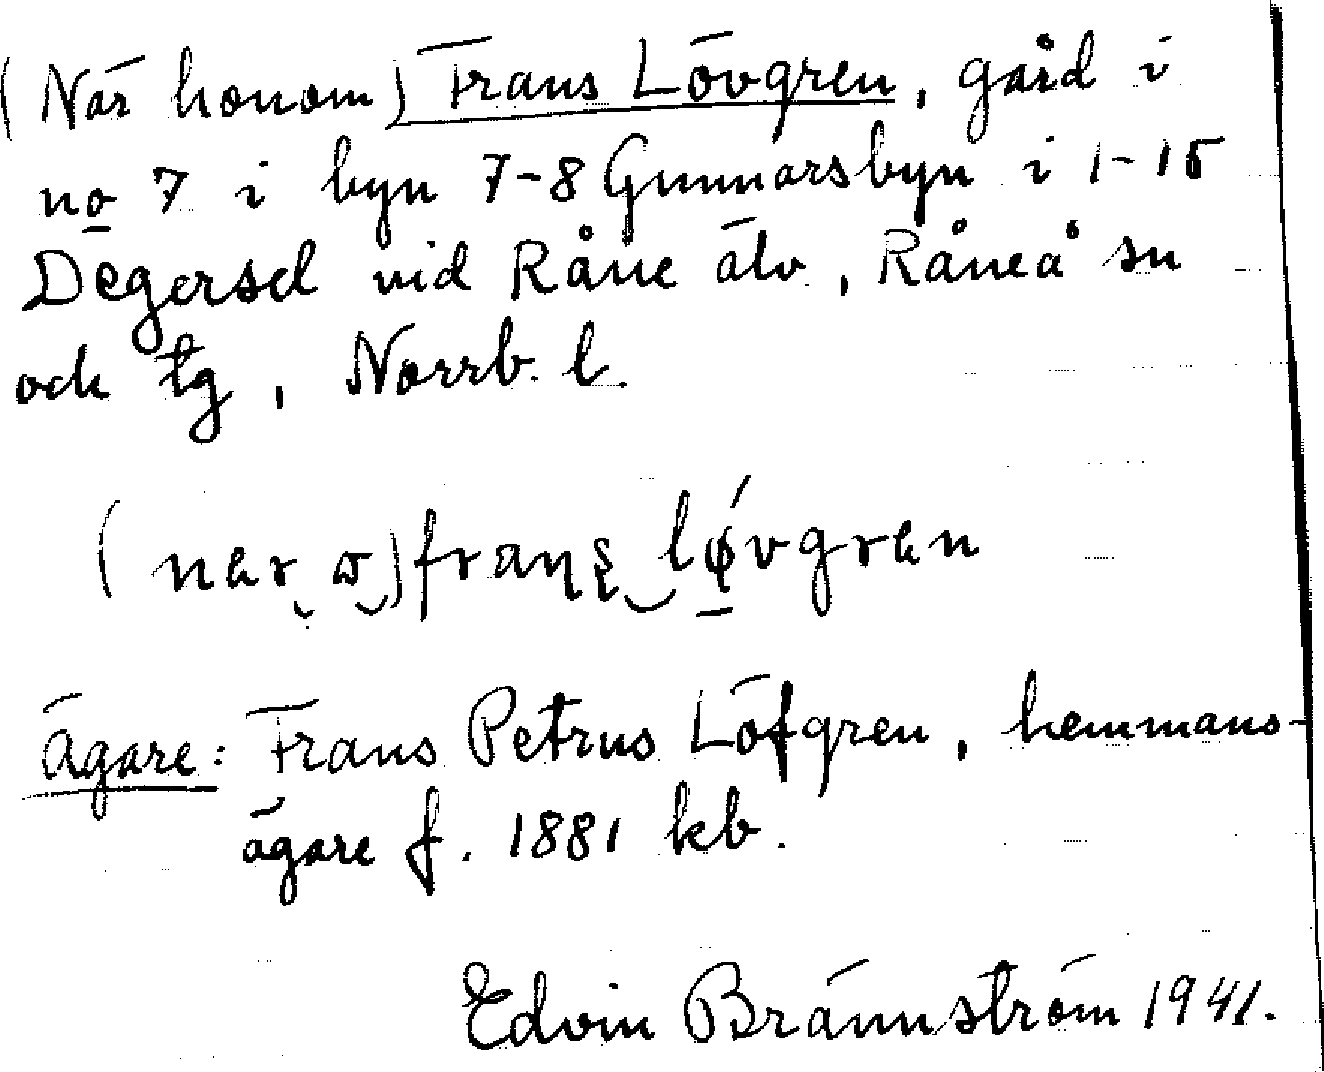 (När honom) Frans Lövgren, gård i
no 7 i byn 7-8 Gunnarsbyn i 1-15
Degersel vid Råne älv, Råneå sn
och tg, Norrb. l.
(nær ɷ) franş lǿvgræn
Ägare: Frans Petrus Löfgren, hemmans-
ägare f. 1881 kb.
Edvin Brännström 1941.